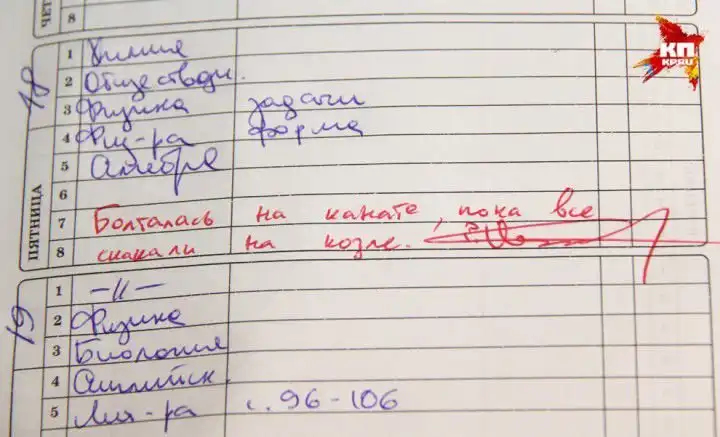 ЧЕТ
8
КП
KP.RU
18
ПЯТНИЦА
1 Химия
2 Обществозн.
3 Физика задачи
4 Физ-ра форма
5 Алгебра
6
7 Болталась на канате, пока все
8 скакали на козле.
19
1 -//-
2 Физика
3 Биология
4 Английск.
5 Лит-ра с. 96-106